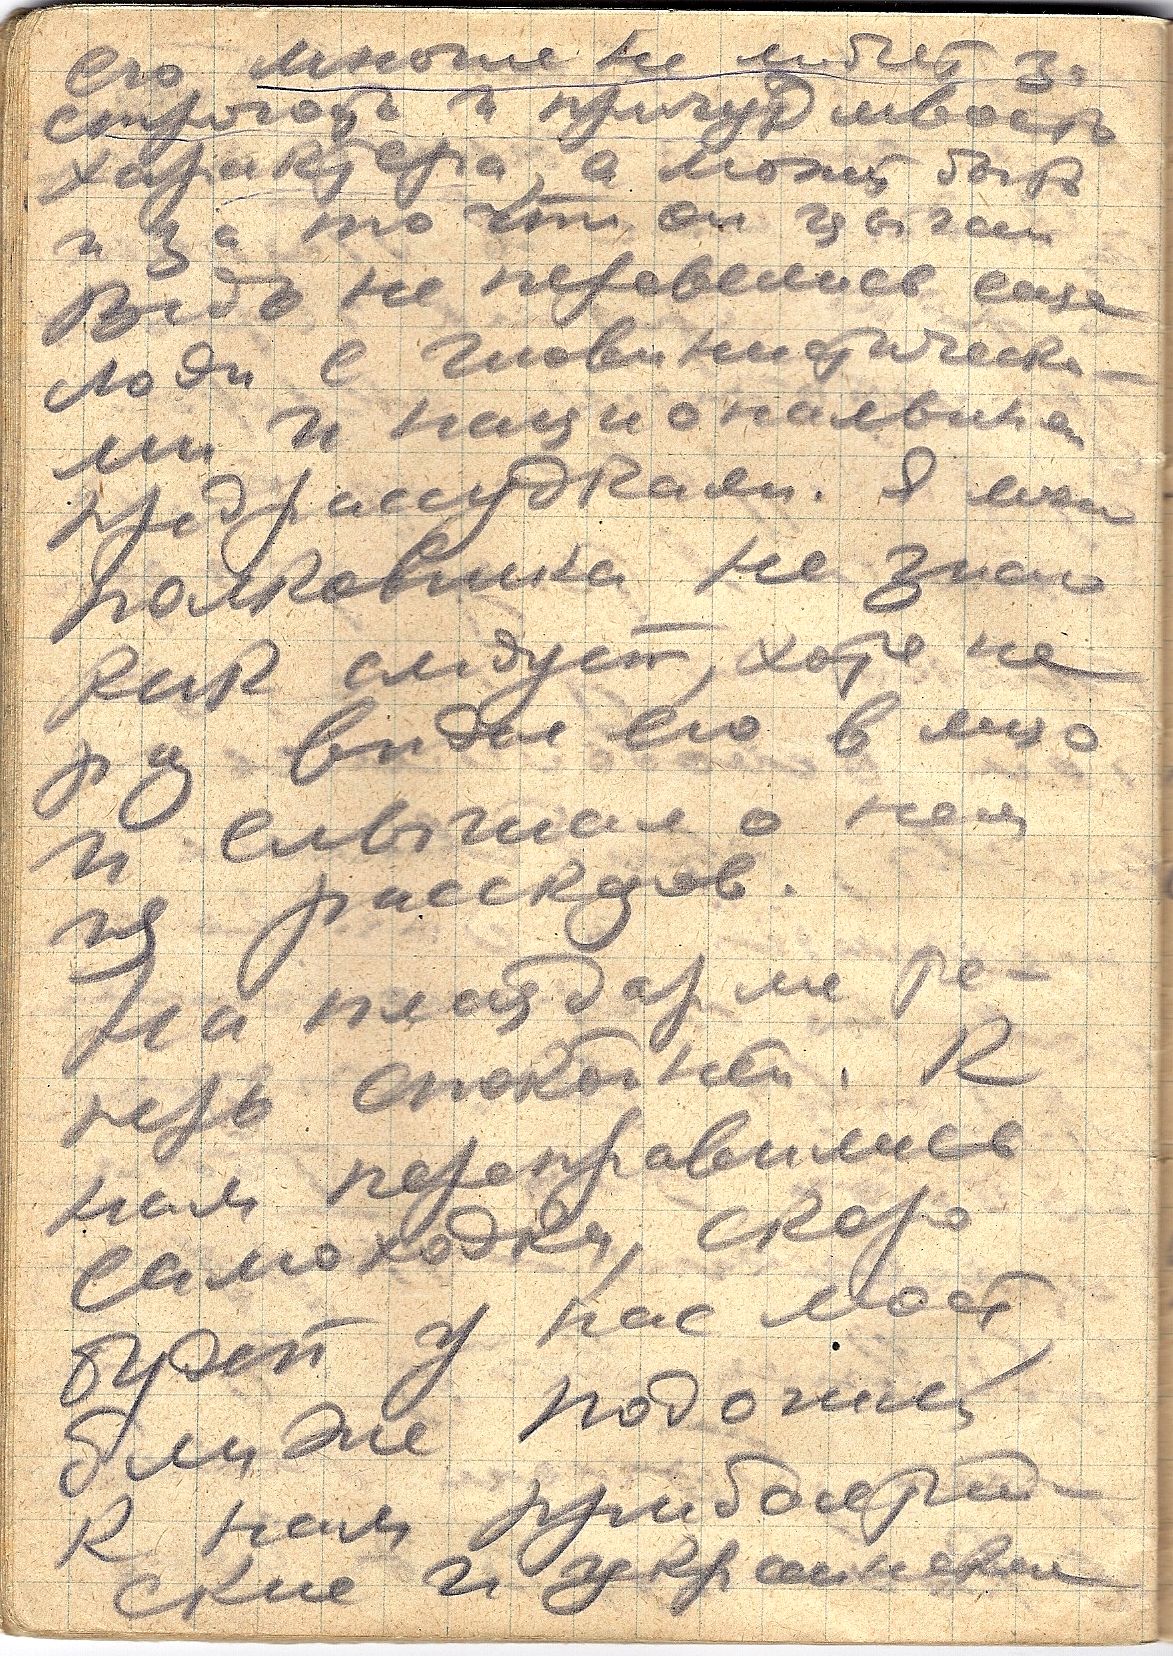 его многие не любят за
строгость и причудливость
характера, а может быть
и за то что он цыган
Ведь не перевелись еще
люди с шовинистически-
ми и национальными
предрассудками. Я сам
полковника не знаю
как следует, хотя не
раз видел его в лицо
и слышал о нем
из рассказов.
На плацдарме те-
перь спокойней. К
нам переправились
самоходки, скоро
будет у нас мост,
ближе подошли
к нам прибалтий-
ские и украински